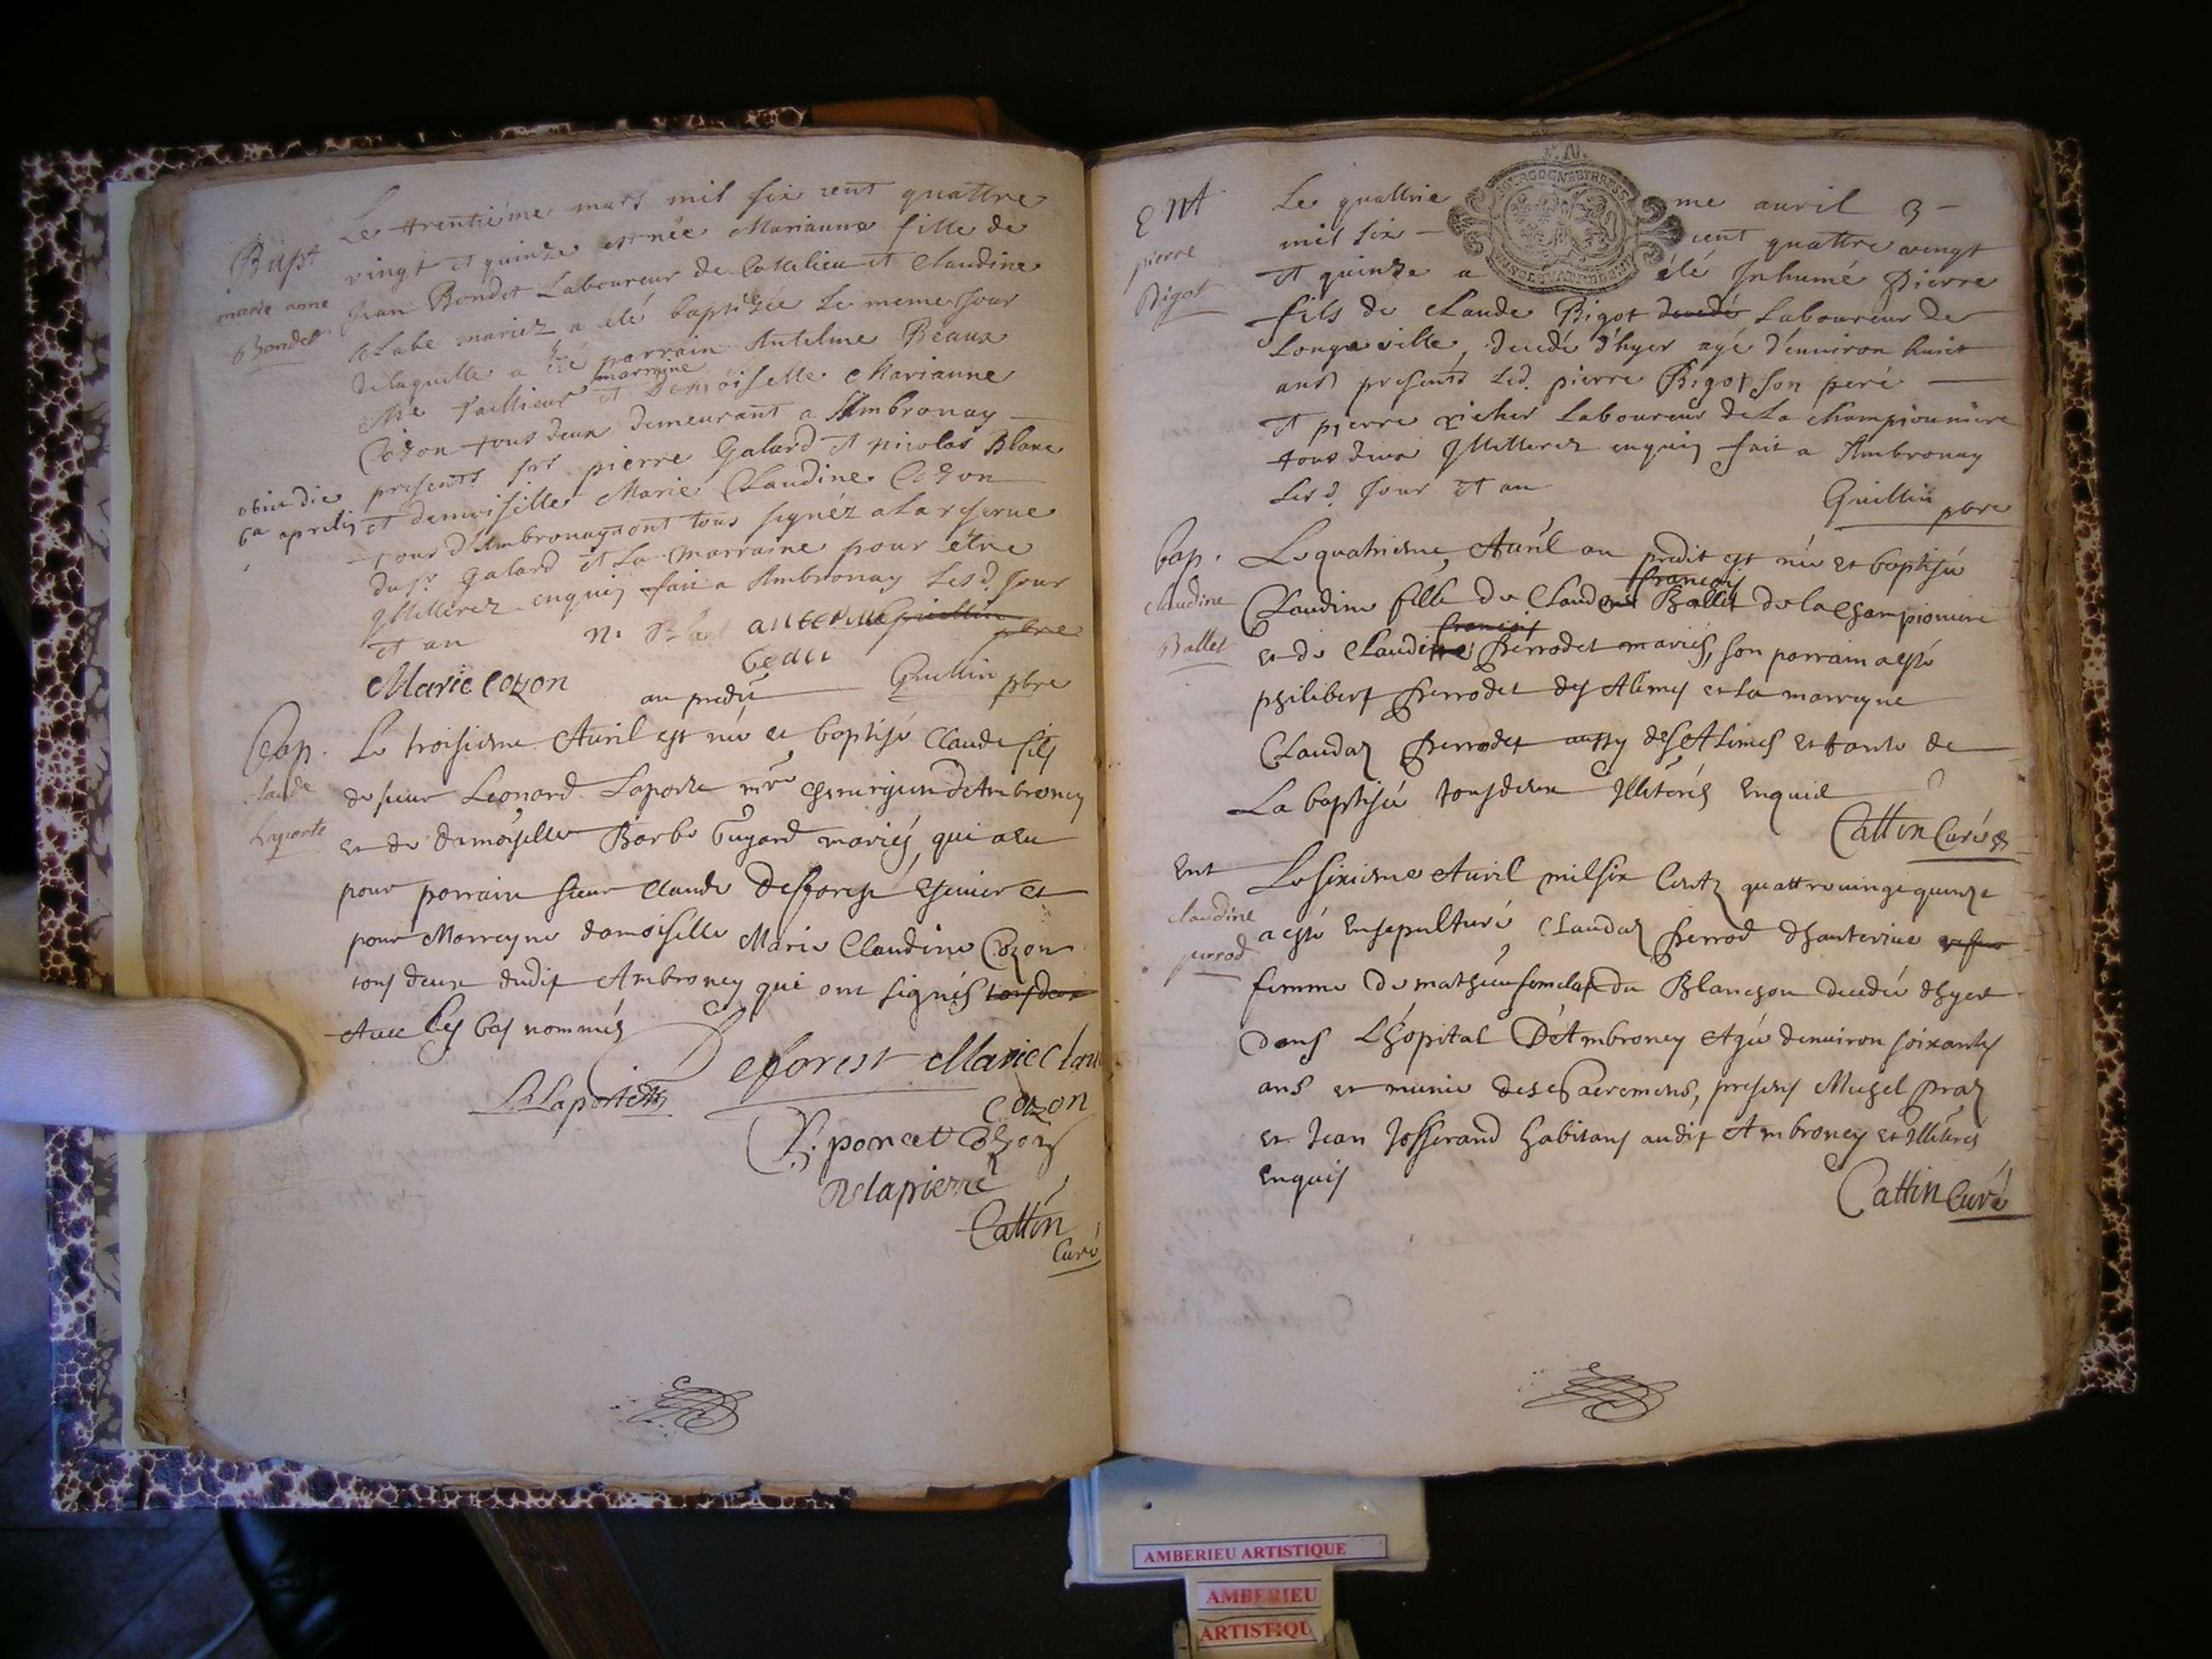 Bapt
marie anne
Bondet
Le trentiéme mars mil six cent quattre
vingt et quinze est née Marianne fille de
Jean Bondet Laboureur de Cotelieu et Claudine
mariez a été baptisée le meme jour
de laquelle a été parrain Antelme Beaux
marraine
Me Tailleur et Demoiselle Marianne
Cozon tous deux demeurant a Ambronay
presents srs pierre Galard et nicolas Blanc
et demoiselle Marie Claudine Cozon
tous d'Ambronay ont tous signéz a la reserue
du sr Galard et La marraine pour être
Illitterez enquis fait a Ambronay Lesd. Jour
et an
obiit die
6a aprilis
n. Blanc antelme Guillin pbre
beau
Marie cozon
Guillin pbre
au predit
Bap.
claude
Laporte
Le troisieme Auril est né et baptisé Claude fils
de sieur Leonard Laporte mre chirurgien d'Ambronay
et de damoiselle Barbe Gugard mariés, qui a eu
pour parrain sieur Claude Defforest et
pour Marreyne damoiselle Marie Claudine Cozon
tous deux dudit Ambronay qui ont signés tous deux
Auec les bas nommés
Deforest Marie Clau
cozon
LLaporte
poncet Cozon
Delapierre
Cattin
Curé
Ent
pierre
Bigot
BOURGOGNE ET BRESSE
Le quattrie me auril
mil six cent quattre vingt
et quinze a été Inhumé Pierre
fils de Claude Bigot decedé Laboureur de
Longeville, decedé d'hyer agé d'enuiron huit
ans presents Led. pierre Bigot son peré
et pierre richer Laboureur de La Championniere
tous deux Illitterez enquis fait a Ambronay
Lesd. Jour et an
Guillin pbre
bap.
claudine
Ballet
Le quatrieme Auril an predit est née et baptisée
françois
Claudine fille de Claude Ballet de la Championiere
françois
et de Claudine Perrodet mariés, son parrain a esté
philibert Perrodet des Alimes et la marreyne
Claudaz Perrodet aussy des Alimes et tante de
La baptisée tous deux Illiterés Enquis
Cattin Curé
Ent
claudine
perrod
Le sixieme Auril mil six Centz quattre uingt quinze
a esté Ensepulturé Claudaz Perrod d'hauterive
femme de mathieu du Blanchon decedée d'hyer
dans L'hopital D'Ambronay Agée denuiron soixantes
ans et munie des Sacremens, presens Michel Praz
et Jean Josserand habitans audit Ambronay et Illiterés
Enquis
Cattin Curé
AMBERIEU ARTISTIQUE
AMBERIEU
ARTISTIQU